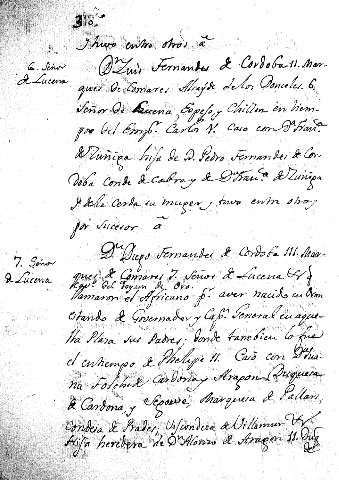 318
Y huvo entre otros â
6. Señor
de Lucena
Dn. Luis Fernandes de Cordoba II. Mar-
ques de Comares Alcayde de los Donceles. 6
Señor de Lucena, Espejo, y Chillon en tiem-
po del Emp.r Carlos V. Caso con D.a Fran.ca
de Zuñiga hija de D. Pedro Fernandes de Cor-
doba conde de Cabra y de D.a Fran.ca de Zuñiga
y de la Cerda su muger, y tuvo entre otros
por sucesor â
7. Señor
de Lucena
Dn. Diego Fernandes de Cordoba III. Mar-
ques de Comares 7. Señor de Lucena &
llamaron el Africano p.r aver nacido en Oran
estando de Governador y Cap.n General en aque-
lla Plaza sus Padres, donde tambien lo fue
el en tiempo de Phelipe II. Casó con D.a Jua-
na Folch de Cardona y Aragon Duquesa
de Cardona, y Segorve Marquesa de Pallars,
condesa de Prades, Viscondesa de Villamur &
Hija heredera de Dn. Alonso de Aragon II. Duq